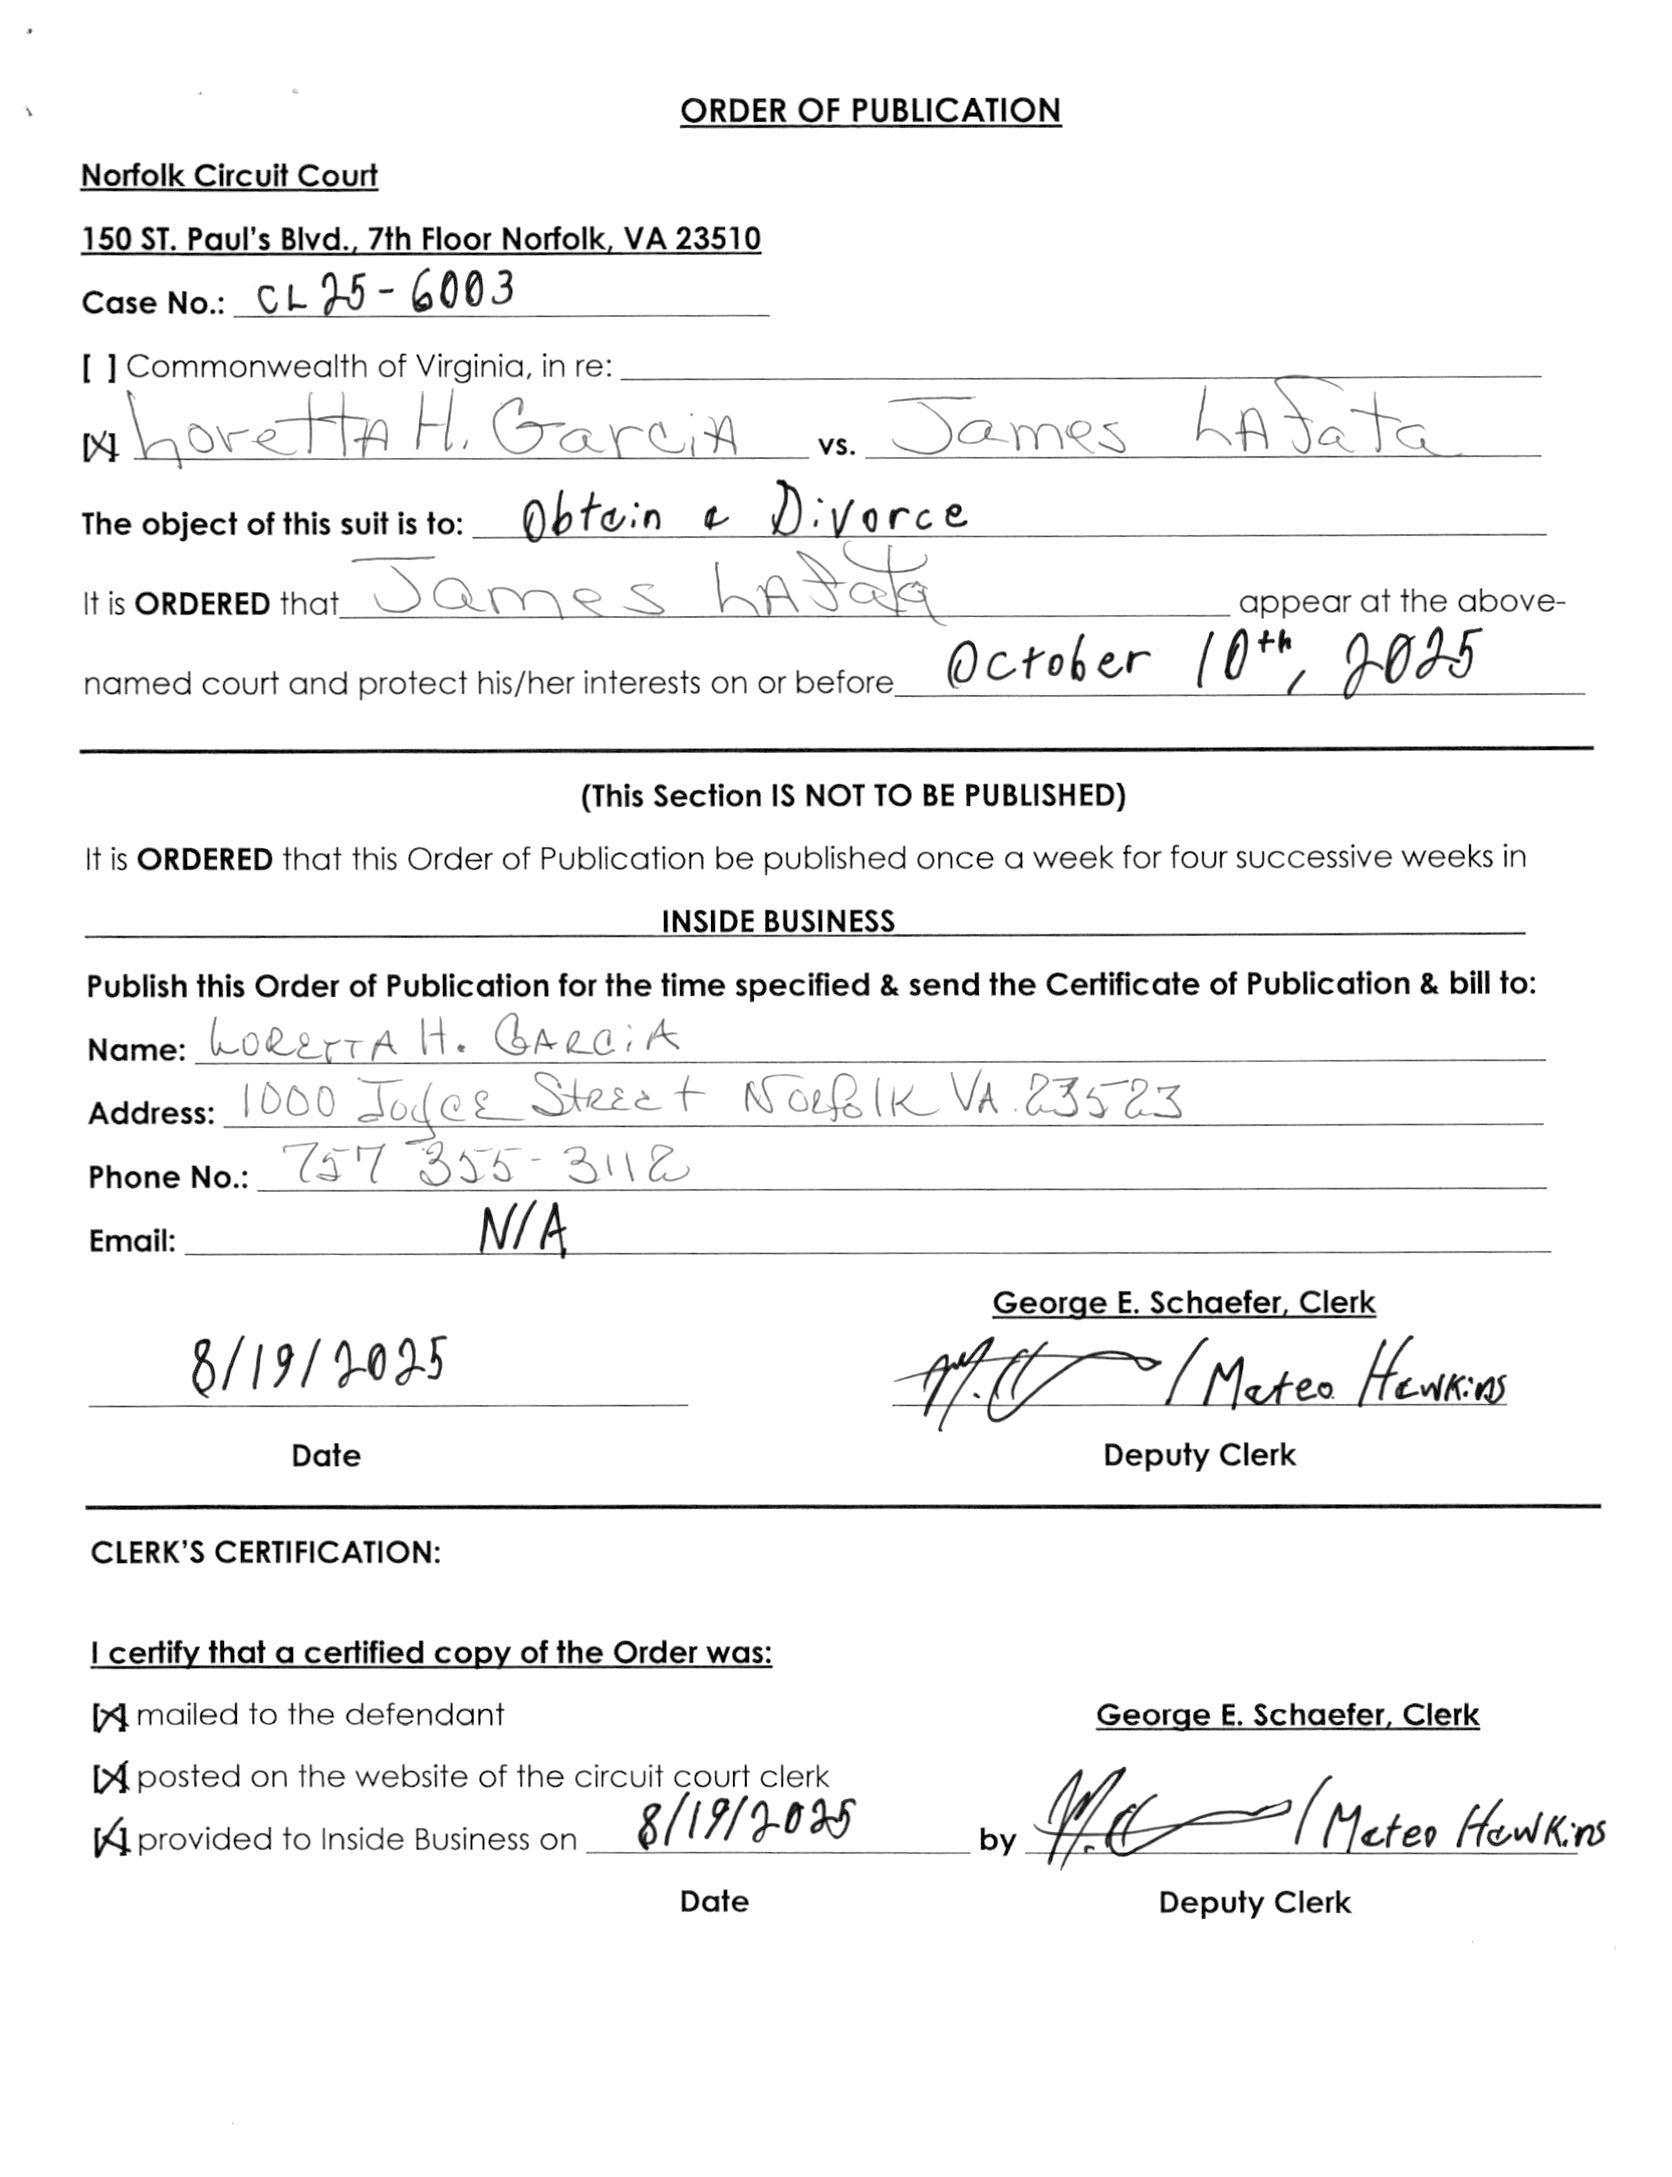 ORDER OF PUBLICATION
Norfolk Circuit Court
150 ST. Paul's Blvd., 7th Floor Norfolk, VA 23510
Case No.: CL25-6003
[ ] Commonwealth of Virginia, in re:
[X] LorettA H. GarciA vs. James LAfata
The object of this suit is to: Obtain a Divorce
It is ORDERED that James LAfata appear at the above-
named court and protect his/her interests on or before October 10th, 2025
(This Section IS NOT TO BE PUBLISHED)
It is ORDERED that this Order of Publication be published once a week for four successive weeks in
INSIDE BUSINESS
Publish this Order of Publication for the time specified & send the Certificate of Publication & bill to:
Name: LORETTA H. GARCiA
Address: 1000 Joyce Street Norfolk VA. 23523
Phone No.: 757 355-3112
Email: N/A
George E. Schaefer, Clerk
8/19/2025 / Mateo Hawkins
Date Deputy Clerk
CLERK'S CERTIFICATION:
I certify that a certified copy of the Order was:
[X] mailed to the defendant George E. Schaefer, Clerk
[X] posted on the website of the circuit court clerk
[X] provided to Inside Business on 8/19/2025 by / Mateo Hawkins
Date Deputy Clerk